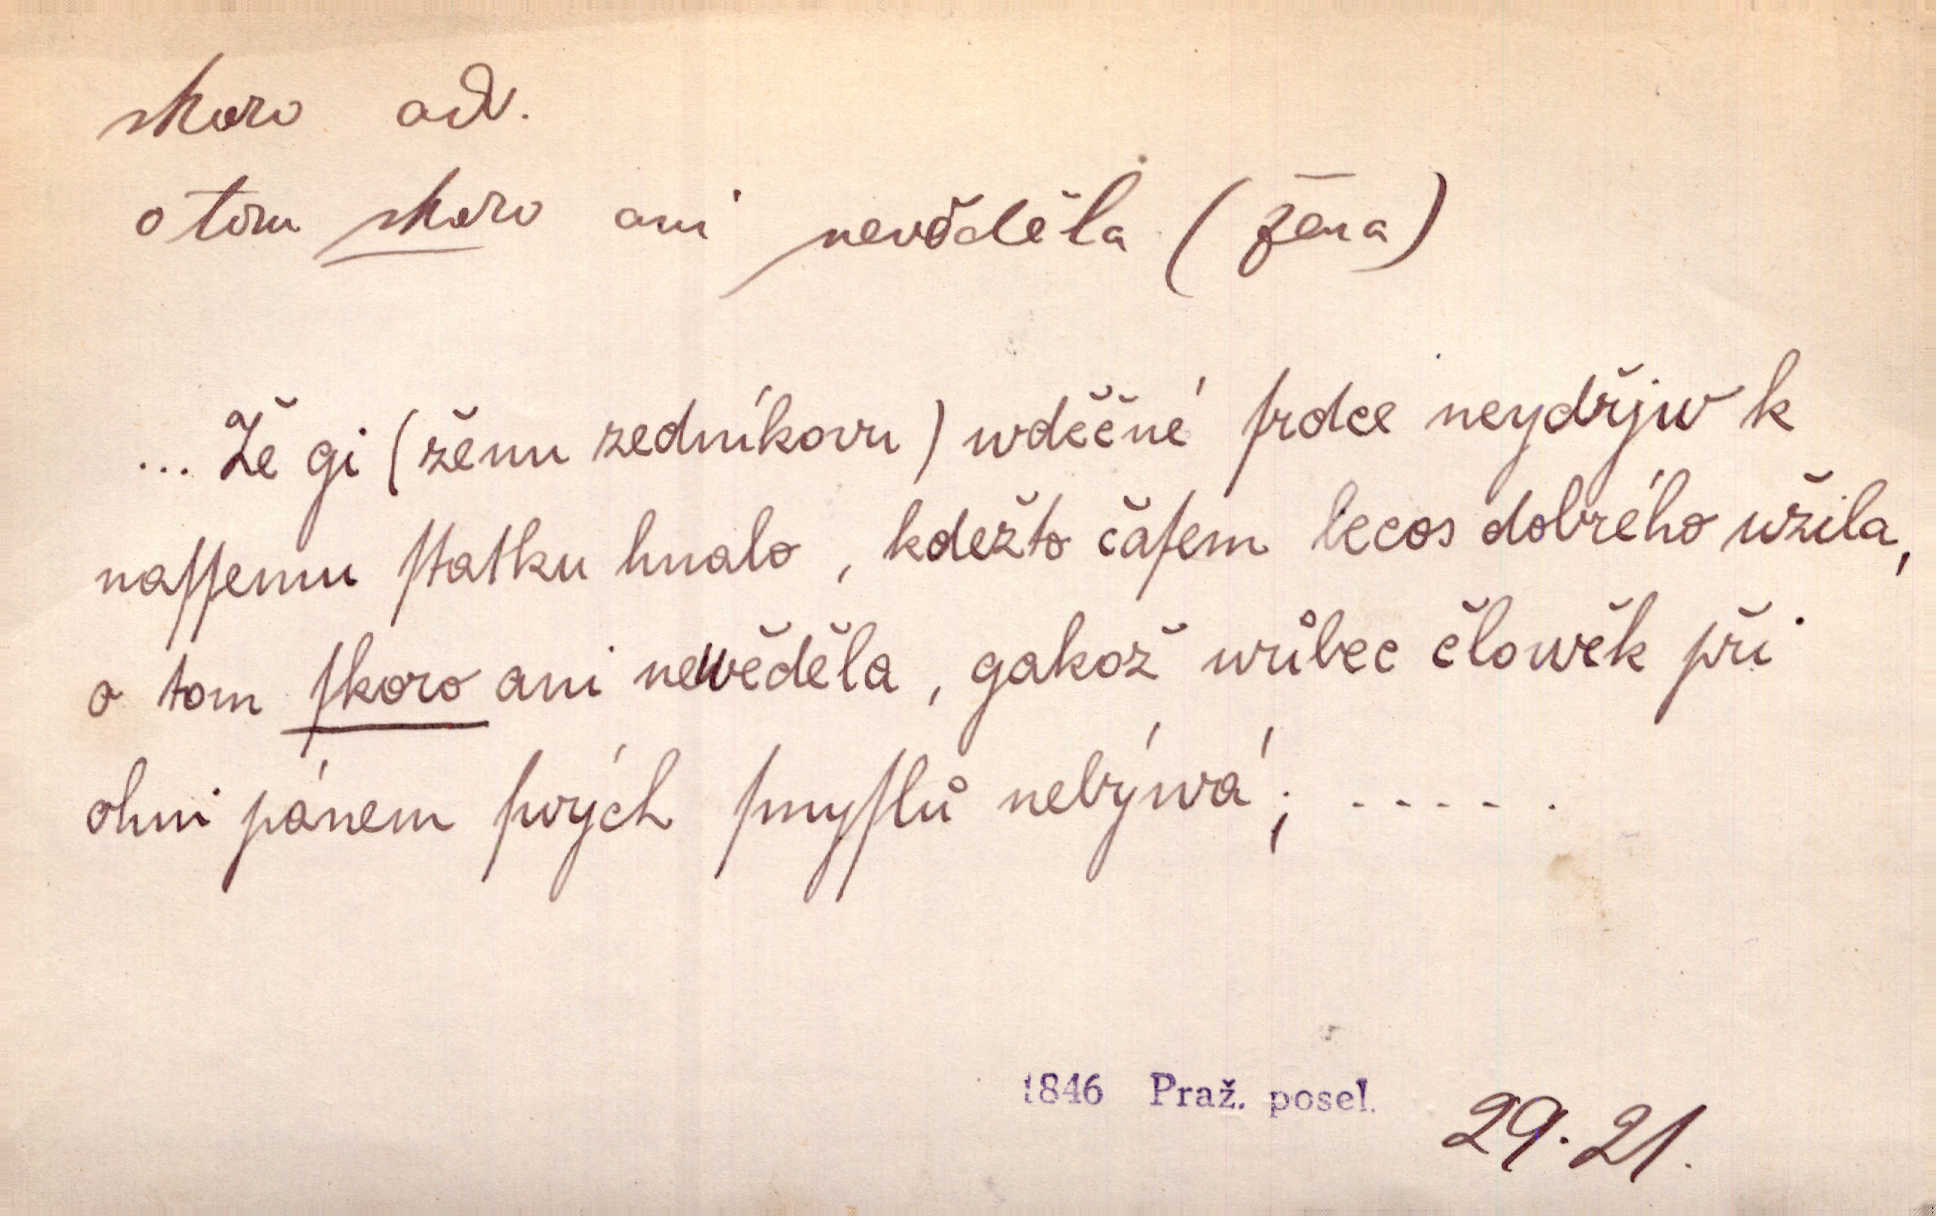 skoro adv.
o tom skoro ani nevěděla (žena)
... Že gi (ženu zedníkovu) wděčné ſrdce neydřjw k
naſſemu ſtatku hnalo, kdežto čaſem lecos dobrého užila,
o tom ſkoro ani newěděla, gakož wůbec člowěk při
ohni pánem ſwých ſmyſlů nebýwá; .....
1846 Praž. posel. 29.21.